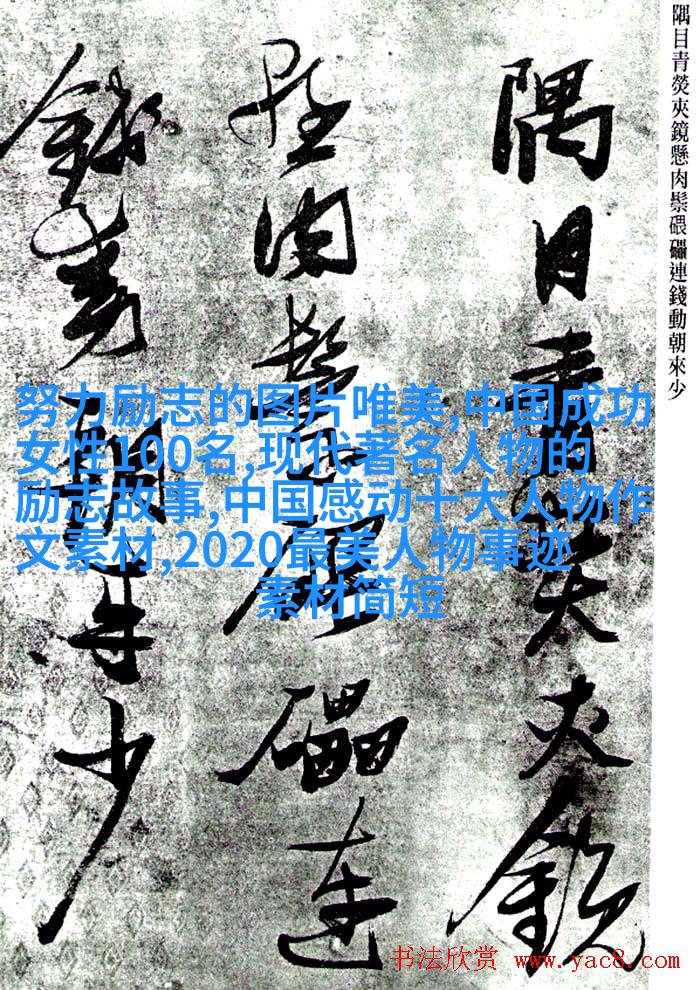 隅目青熒夾鏡懸肉鬃碨礧連錢動朝來少
隅目青熒夾鏡
懸肉鬃碨礧連
錢動朝來少
努力励志的图片唯美,中国成功
女性100名,现代著名人物的
励志故事,中国感动十大人物作
文素材,2020最美人物事迹
素材简短
书法欣赏 www.yac8.com